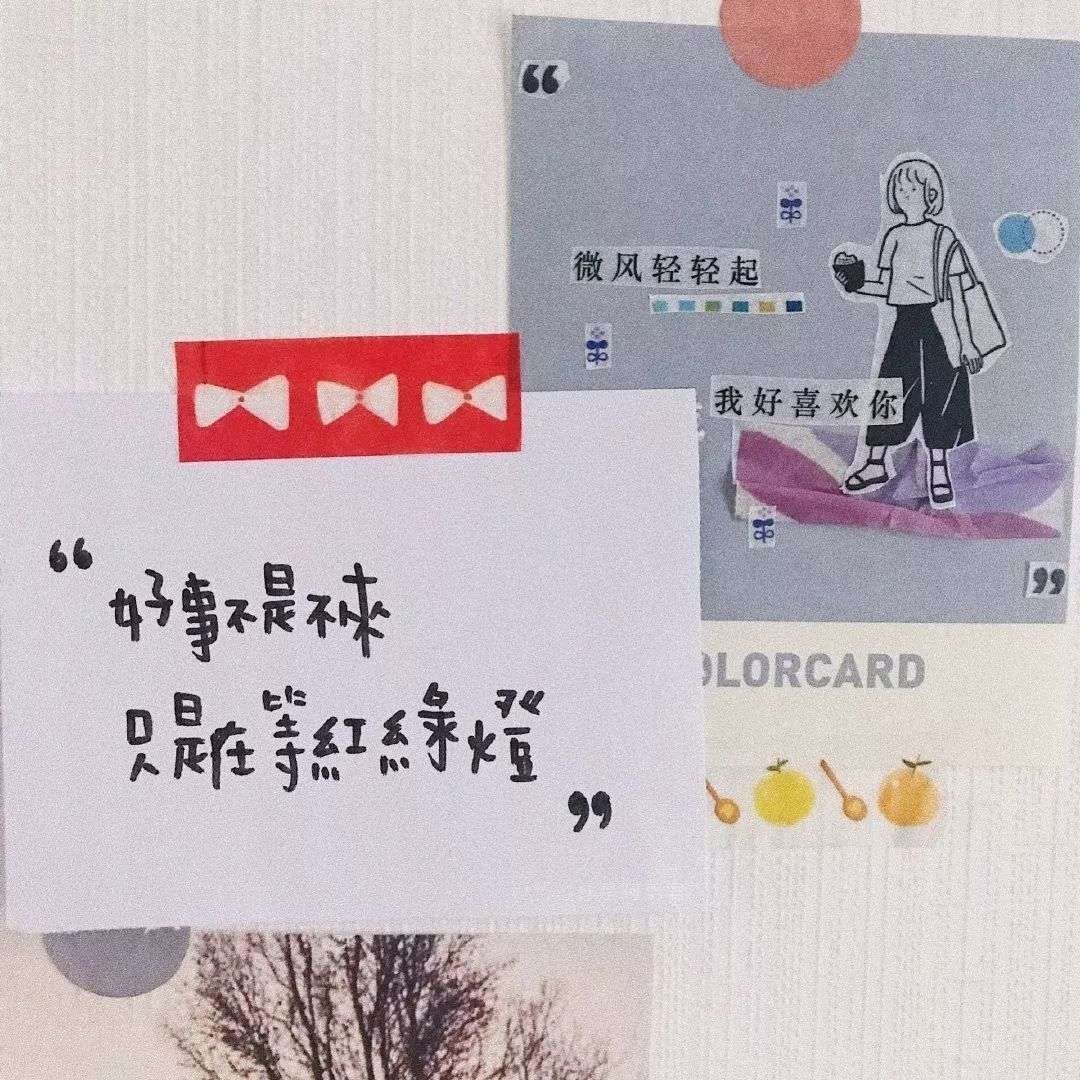 “
微风轻轻起
我好喜欢你
”
OLORCARD
“ 好事不是不來
只是在等紅綠燈 ”